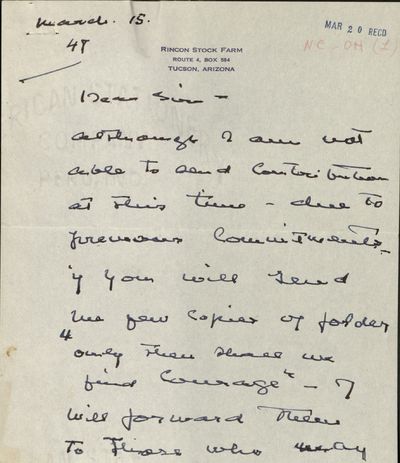 March. 15.
47
MAR 20 RECD
NC-OH (1)
RINCON STOCK FARM
ROUTE 4, BOX 584
TUCSON, ARIZONA
Dear Sir -
although I am not
able to send Contribution
at this time - due to
previous Commitments -
if you will send
me few copies of folder
"only then shall we
find Courage" - I
will forward them
to those who may